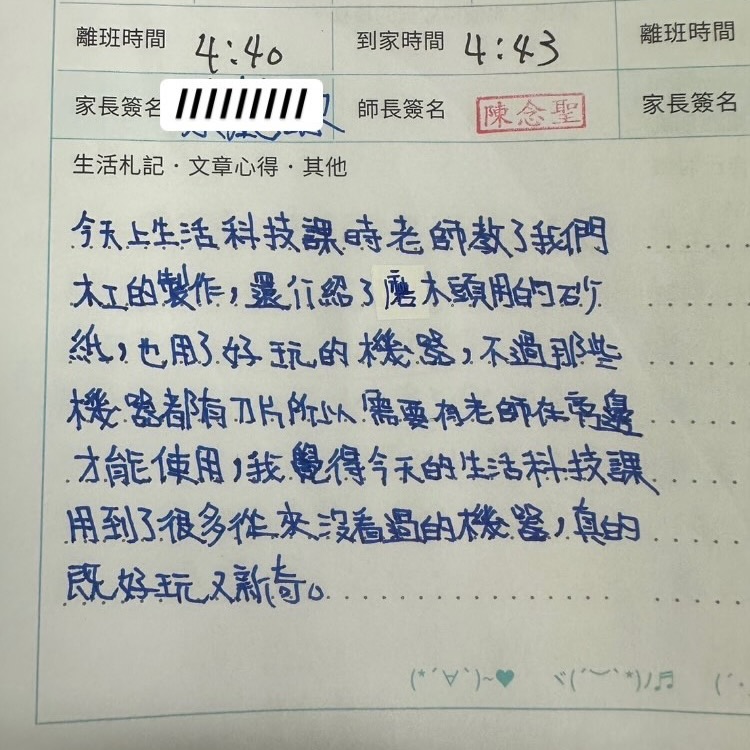 離班時間 4:40 到家時間 4:43 離班時間
家長簽名 師長簽名 陳念聖 家長簽名
生活札記・文章心得・其他
今天上生活科技課時老師教了我們
木工的製作，還介紹了磨木頭用的砂
紙，也用了好玩的機器，不過那些
機器都有刀片所以需要有老師在旁邊
才能使用，我覺得今天的生活科技課
用到了很多從來沒看過的機器，真的
既好玩又新奇。